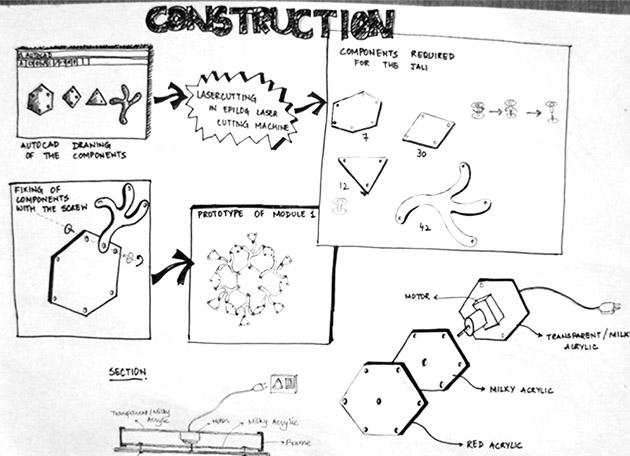 CONSTRUCTION
AUTOCAD
AUTOCAD DRANING
OF THE COMPONENTS
LASERCUTTING
IN EPILOG LASER
CUTTING MACHINE
COMPONENTS REQUIRED
FOR THE JALI
7
30
12
42
FIXING OF
COMPONENTS
WITH THE SCREW
PROTOTYPE OF MODULE 1
MOTOR
TRANSPARENT/MILKY
ACRYLIC
MILKY ACRYLIC
RED ACRYLIC
SECTION
Transparent/Milky
Acrylic
Motor
Milky Acrylic
Frame